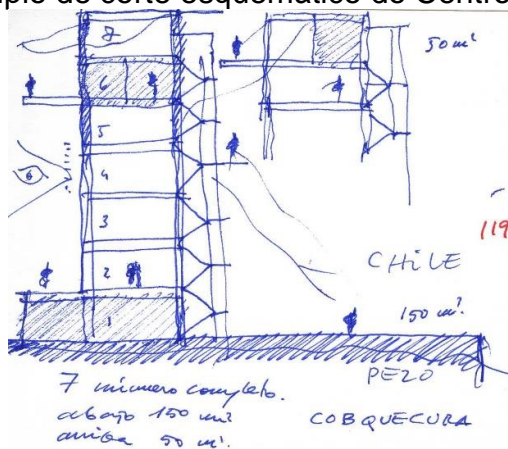 plo de corte esquemático de Centro
7
50 m²
6
5
4
3
119
CHILE
2
150 m².
1
PEZO
7 número completo.
abajo 150 m²
arriba 50 m².
COBQUECURA